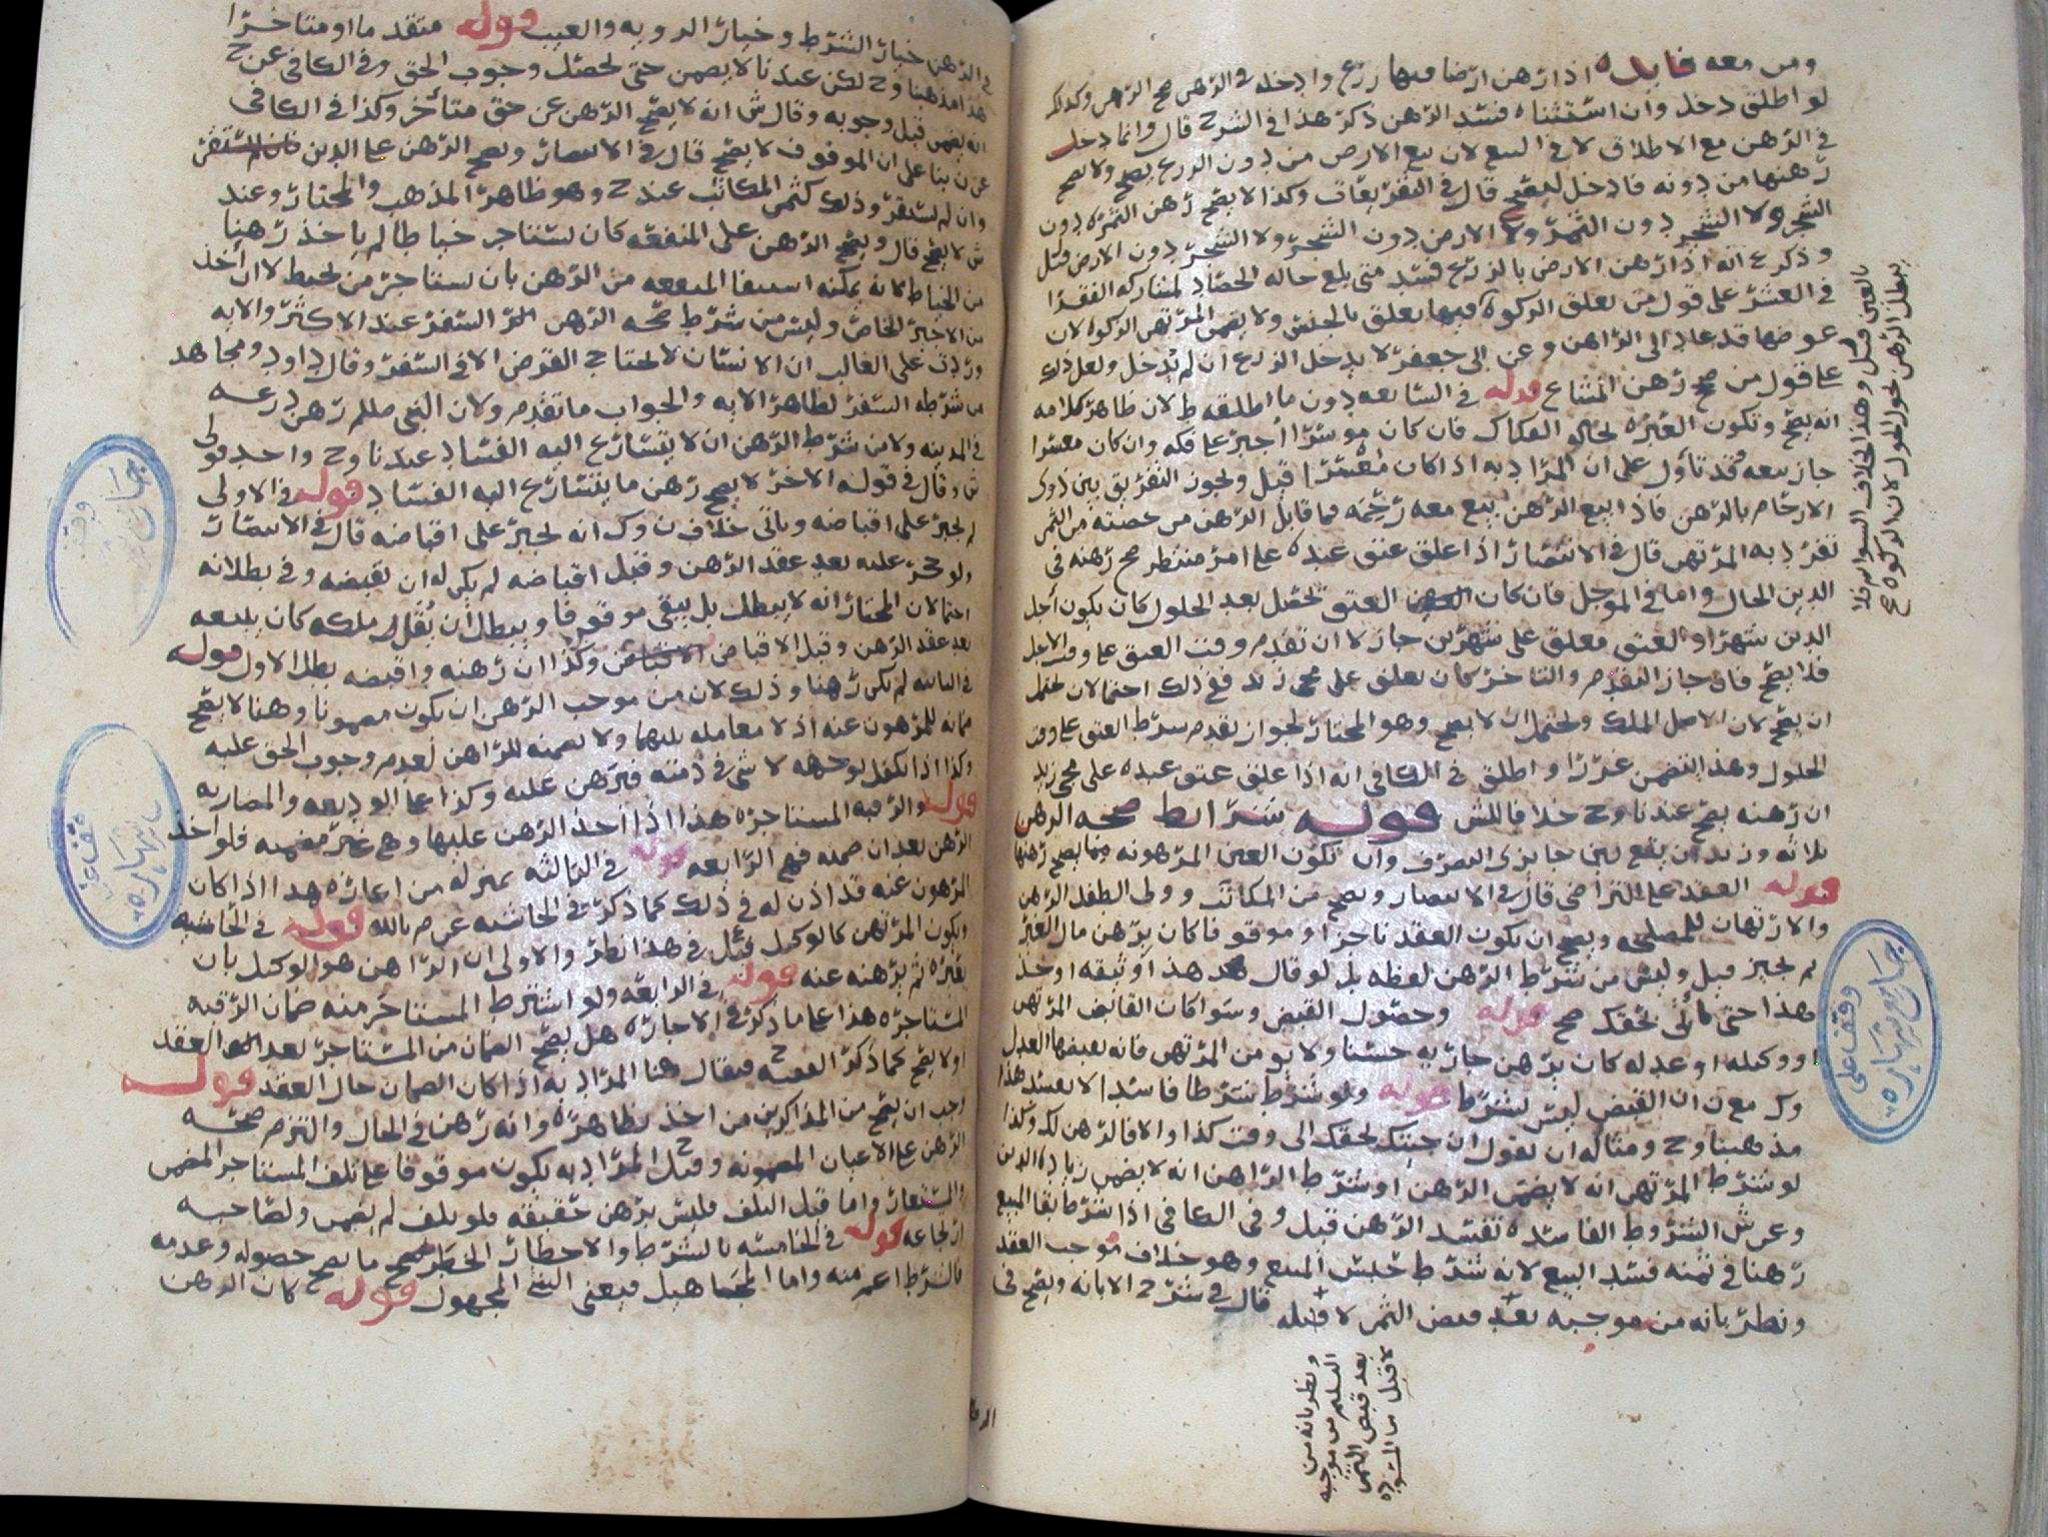 ومن معه فايده اذا رهن ارضا فيها زرع وادخله في الرهن صح الرهن وكذلك
لو اطلق دخل وان استثناه فسد الرهن ذكر هذا في الشرح قال وانما دخل
في الرهن مع الاطلاق لا في البيع لان بيع الارض من دون الزرع يصح ولا يصح
رهنها من دونه فادخل ليصح قال في التقريرات وكذا لا يصح رهن الثمره دون
الشجر ولا الشجر دون الثمر ولا الارض دون الشجر ولا الشجر دون الارض قيل
وذكر ع انه اذا رهن الارض بالزرع فسد متى بلغ حاله الحصاد لمشاركه الفقرا
في العشر على قول من يعلق الزكوة فيها تعلق بالجنس ولا يضمن المرتهن الزكوة لان
عوضها قد عاد الى الراهن وعن ابي جعفر لا يدخل الزرع ان لم يدخل ولعل ذلك
على قول من صح رهن المشاع قوله في السابعه دون ما اطلقه ط لان ظاهر كلامه
انه يصح وتكون العبرة بحالة الفكاك فان كان موسرا اجبر على فكه وان كان معسرا
جاز بيعه وقد تأول على ان المراد به اذا كان معسرا قيل ويجوز التفريق بين ذوي
الارحام بالرهن فاذا بيع الرهن بيع معه رحمه فما قابل الرهن من حصته من الثمن
تفرد به المرتهن قال في الانتصار اذا علق عتق عبده على امر منتظر صح رهنه في
الدين الحال واما في الموجل فان كان العتق يحصل بعد الحلول كان يكون اجل
الدين شهرا والعتق معلق على شهرين جاز لا ان تقدم وقت العتق على وقت الاجل
فلا يصح فان جاز التقدم والتاخر كان يعلق على مجي زيد ففي ذلك احتمالان يحتمل
ان يصح لان الاصل الملك ويحتمل ان لا يصح وهو المختار لجواز تقدم شرط العتق على وقت
الحلول وهذا يتضمن غررا واطلق في الكافي انه اذا علق عتق عبده على مجي زيد
ان رهنه يصح عندنا وح خلافا للش قوله شرائط صحه الرهن
ثلاثه وزيد ان يقع بين جايزي التصرف وان تكون العين المرهونه مما يصح رهنها
قوله العقد على التراضي قال في الانتصار ويصح من المكاتب وولي الطفل الرهن
والارتهان للمصلحه ويصح ان يكون العقد ناجزا وموقوفا كان يرهن مال الغير
ثم يجيز قيل وليس من شرط الرهن لفظه بل لو قال خذ هذا او ثيقه او خذ
هذا حتى تأتي بحقك صح قوله وحصول القبض وسوا كان القابض المرتهن
او وكيله او عدله كان يرهن جاريه حسنا ولا يومن المرتهن فانه يقبضها العدل
وك مع ن ان القبض ليس بشرط قوله ولو شرط شرطا فاسدا لا يفسد هذا
مذهبنا وح ومثاله ان يقول ان جيتك بحقك الى وقت كذا والا فالرهن لك وكذا
لو شرط المرتهن انه لا يضمن الرهن او شرط الراهن انه لا يضمن زيادة الدين
وعن ش الشروط الفاسده تفسد الرهن قيل وفي الكافي اذا شرط بقا المبيع
رهنا في ثمنه فسد البيع لانه شرط حبس المبيع وهو خلاف موجب العقد
ونظر بانه من موجبه بعد قبض الثمن لا قبله قال في شرح الابانه ويصح في
بالعين قيل وهذا الخلاف السوايم فلا
يبطل الرهن بحول الحول لان الزكوة ع
ونظر بانه من
التسليم من موجبه
بعد قبض الثمن
لا قبل
وقف على
في الرهن خيار الشرط وخيار الرويه والعيب قوله متقدما او متاخرا
هذا مذهبنا وح لكن عندنا لا يضمن حتى يحصل وجوب الحق وفي الكافي عن ح
انه يضمن قبل وجوبه وقال ش انه لا يصح الرهن عن حق متأخر وكذا في الكافي
عن ن بنا على ان الموقوف لا يصح قال في الانتصار ويصح الرهن على الدين
وان لم يستقر وذلك كثمن المكاتب عند ح وهو ظاهر المذهب والمختار وعند
ش لا يصح قال ويصح الرهن على المنفعه كان يستاجر خياطا ثم ياخذ رهنا
من الخياط لانه يمكنه استيفا المنفعه من الرهن بان يستاجر من يخيط لا ان أخذ
من الاجير الخاص وليس من شرط صحه الرهن السفر عند الاكثر والايه
وردت على الغالب ان الانسان لا يحتاج القرض الا في السفر وقال داود ومجاهد
من شرطه السفر لظاهر الايه والجواب ما تقدم ولان النبي صلعم رهن درعه
في المدينه ولا من شرط الرهن ان لا يتسارع اليه الفساد عندنا وح واحد قولي
ش وقال في قوله الاخر لا يصح رهن ما يتسارع اليه الفساد قوله في الاولى
لم يجبر على اقباضه وياتي خلاف ن وك انه يجبر على اقباضه قال في الانتصار
ولو حجر عليه بعد عقد الرهن وقبل اقباضه لم يكن له ان يقبضه وفي بطلانه
احتمالان المختار انه لا يبطل بل يبقى موقوفا ويبطل ان نقل ملكه كان يبيعه
بعد عقد الرهن وقبل الاقباض وكذا ان رهنه واقبضه بطل الاول قوله
في الثانيه لم يكن رهنا وذلك لان من موجب الرهن ان يكون مضمونا وهنا لا يصح
ضمانه للمرهون عنه اذ لا معامله بينهما ولا يضمنه للراهن لعدم وجوب الحق عليه
وكذا اذا تكفل بوجهه لا شي في ذمته فيرهن عليه وكذا على الوديعه والمضاربه
قوله والرقبه المستاجره هذا اذا اخذ الرهن عليها وهي غير مضمنه فلو اخذ
الرهن بعد ان ضمنه فهي الرابعه قوله في الثالثه بمنزله من اعاره هذا اذا كان
المرهون عنه قد اذن له في ذلك كما ذكر في الحاشيه عن م بالله قوله في الحاشيه
ويكون المرتهن كالوكيل قيل في هذا نظر والاولى ان الراهن هو الوكيل بان
يعيره ثم يرهنه عنه قوله في الرابعه ولو اشترط المستاجر منه ضمان الرقبه
المستاجره هذا على ما ذكر في الاجاره هل يصح الضمان من المستاجر بعد العقد
اولا يصح كما ذكر الفقيه ح فيقال هنا المراد به اذا كان الضمان حال العقد قوله
وجب ان يصح من المذاكرين من اخذ بظاهره وانه رهن في الحال والتزم صحه
الرهن على الاعيان المضمونه وقيل ح المراد به يكون موقوفا على تلف المستاجر المضمن
والمستعار واما قبل التلف فليس برهن حقيقه فلو تلف لم يضمن ولصاحبه
ارتجاعه قوله في الخامسه بالشرط والاخطار الخطر يصح ما يصح حصوله وعدمه
فالشرط اعم منه واما المجاهيل فيعني الشي المجهول قوله كان الرهن
وقف
وقف على